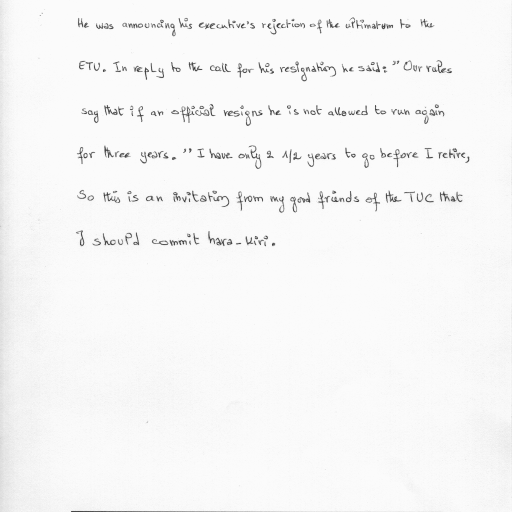 He was announcing his executive's rejection of the ultimatum to the
ETU. In reply to the call for his resignation he said: "Our rules
say that if an official resigns he is not allowed to run again
for three years." I have only 2 1/2 years to go before I retire,
So this is an invitation from my good friends of the TUC that
I should commit hara-kiri.